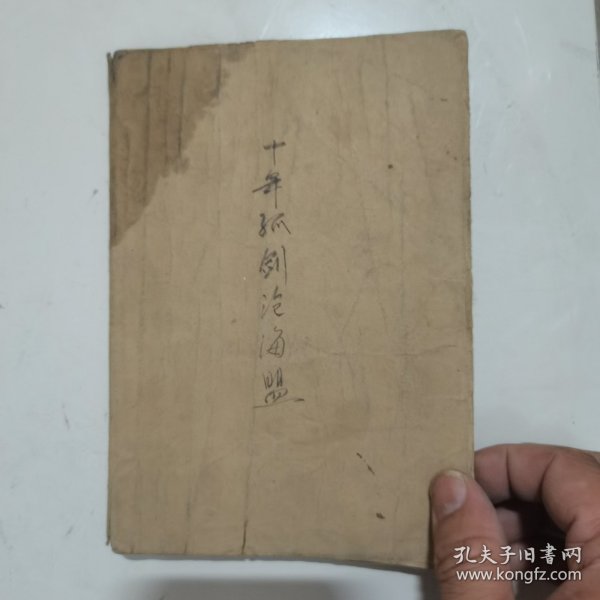 十年孤剑沧海盟
孔夫子旧书网
www.kongfz.com